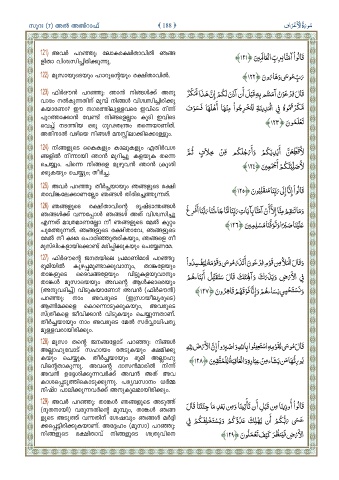 സൂറ (7) അൽ അഅ്റാഫ്
﴾ 188 ﴿
سُورَةُ الْأَعْرَافِ
121) അവർ പറഞ്ഞു: ലോകരക്ഷിതാവിൽ ഞങ്ങ
ളിതാ വിശ്വസിച്ചിരിക്കുന്നു.
قَالُوا آمَنَّا بِرَبِّ الْعَالَمِينَ ﴿١٢١﴾
122) മൂസായുടെയും ഹാറൂന്റെയും രക്ഷിതാവിൽ.
رَبِّ مُوسَىٰ وَهَارُونَ ﴿١٢٢﴾
123) ഫിർഔൻ പറഞ്ഞു: ഞാൻ നിങ്ങൾക്ക് അനു
വാദം നൽകുന്നതിന് മുമ്പ് നിങ്ങൾ വിശ്വസിച്ചിരിക്കു
കയാണോ? ഈ നഗരത്തിലുള്ളവരെ ഇവിടെ നിന്ന്
പുറത്താക്കാൻ വേണ്ടി നിങ്ങളെല്ലാം കൂടി ഇവിടെ
വെച്ച് നടത്തിയ ഒരു ഗൂഢതന്ത്രം തന്നെയാണിത്.
അതിനാൽ വഴിയെ നിങ്ങൾ മനസ്സിലാക്കിക്കൊള്ളും.
قَالَ فِرْعَوْنُ آمَنتُم بِهِ قَبْلَ أَنْ آذَنَ لَكُمْ إِنَّ هَٰذَا لَمَكْرٌ
مَّكَرْتُمُوهُ فِي الْمَدِينَةِ لِتُخْرِجُوا مِنْهَا أَهْلَهَا فَسَوْفَ
تَعْلَمُونَ ﴿١٢٣﴾
124) നിങ്ങളുടെ കൈകളും കാലുകളും എതിർവശ
ങ്ങളിൽ നിന്നായി ഞാൻ മുറിച്ചു കളയുക തന്നെ
ചെയ്യും. പിന്നെ നിങ്ങളെ മുഴുവൻ ഞാൻ ക്രൂശി
ക്കുകയും ചെയ്യും; തീർച്ച.
لَأُقَطِّعَنَّ أَيْدِيَكُمْ وَأَرْجُلَكُم مِّنْ خِلَافٍ ثُمَّ
لَأُصَلِّبَنَّكُمْ أَجْمَعِينَ ﴿١٢٤﴾
125) അവർ പറഞ്ഞു: തീർച്ചയായും ഞങ്ങളുടെ രക്ഷി
താവിങ്കലേക്കാണല്ലോ ഞങ്ങൾ തിരിച്ചെത്തുന്നത്.
قَالُوا إِنَّا إِلَىٰ رَبِّنَا مُنقَلِبُونَ ﴿١٢٥﴾
126) ഞങ്ങളുടെ രക്ഷിതാവിന്റെ ദൃഷ്ടാന്തങ്ങൾ
ഞങ്ങൾക്ക് വന്നപ്പോൾ ഞങ്ങൾ അത് വിശ്വസിച്ചു
എന്നത് മാത്രമാണല്ലോ നീ ഞങ്ങളുടെ മേൽ കുറ്റം
ചുമത്തുന്നത്. ഞങ്ങളുടെ രക്ഷിതാവേ, ഞങ്ങളുടെ
മേൽ നീ ക്ഷമ ചൊരിഞ്ഞുതരികയും, ഞങ്ങളെ നീ
മുസ്ലിംകളായിക്കൊണ്ട് മരിപ്പിക്കുകയും ചെയ്യേണമേ.
وَمَا تَنقِمُ مِنَّا إِلَّا أَنْ آمَنَّا بِآيَاتِ رَبِّنَا لَمَّا جَاءَتْنَا رَبَّنَا أَفْرِغْ
عَلَيْنَا صَبْرًا وَتَوَفَّنَا مُسْلِمِينَ ﴿١٢٦﴾
127) ഫിർഔന്റെ ജനതയിലെ പ്രമാണിമാർ പറഞ്ഞു:
ഭൂമിയിൽ കുഴപ്പമുണ്ടാക്കുവാനും, താങ്കളേയും
താങ്കളുടെ ദൈവങ്ങളേയും വിട്ടുകളയുവാനും
താങ്കൾ മൂസായെയും അവന്റെ ആൾക്കാരെയും
(അനുവദിച്ച്) വിടുകയാണോ? അവൻ (ഫിർഔൻ)
പറഞ്ഞു: നാം അവരുടെ (ഇസ്രായീല്യരുടെ)
ആൺമക്കളെ കൊന്നൊടുക്കുകയും, അവരുടെ
സ്ത്രീകളെ ജീവിക്കാൻ വിടുകയും ചെയ്യുന്നതാണ്.
തീർച്ചയായും നാം അവരുടെ മേൽ സർവ്വാധിപത്യ
മുള്ളവരായിരിക്കും.
وَقَالَ الْمَلَأُ مِن قَوْمِ فِرْعَوْنَ أَتَذَرُ مُوسَىٰ وَقَوْمَهُ لِيُفْسِدُوا
فِي الْأَرْضِ وَيَذَرَكَ وَآلِهَتَكَ قَالَ سَنُقَتِّلُ أَبْنَاءَهُمْ
وَنَسْتَحْيِي نِسَاءَهُمْ وَإِنَّا فَوْقَهُمْ قَاهِرُونَ ﴿١٢٧﴾
128) മൂസാ തന്റെ ജനങ്ങളോട് പറഞ്ഞു: നിങ്ങൾ
അല്ലാഹുവോട് സഹായം തേടുകയും ക്ഷമിക്കു
കയും ചെയ്യുക. തീർച്ചയായും ഭൂമി അല്ലാഹു
വിന്റെതാകുന്നു. അവന്റെ ദാസൻമാരിൽ നിന്ന്
അവൻ ഉദ്ദേശിക്കുന്നവർക്ക് അവൻ അത് അവ
കാശപ്പെടുത്തിക്കൊടുക്കുന്നു. പര്യവസാനം ധർമ്മ
നിഷ്ഠ പാലിക്കുന്നവർക്ക് അനുകൂലമായിരിക്കും.
قَالَ مُوسَىٰ لِقَوْمِهِ اسْتَعِينُوا بِاللَّهِ وَاصْبِرُوا إِنَّ الْأَرْضَ لِلَّهِ
يُورِثُهَا مَن يَشَاءُ مِنْ عِبَادِهِ وَالْعَاقِبَةُ لِلْمُتَّقِينَ ﴿١٢٨﴾
129) അവർ പറഞ്ഞു: താങ്കൾ ഞങ്ങളുടെ അടുത്ത്
(ദൂതനായി) വരുന്നതിന്റെ മുമ്പും, താങ്കൾ ഞങ്ങ
ളുടെ അടുത്ത് വന്നതിന് ശേഷവും ഞങ്ങൾ മർദ്ദി
ക്കപ്പെട്ടിരിക്കുകയാണ്. അദ്ദേഹം (മൂസാ) പറഞ്ഞു:
നിങ്ങളുടെ രക്ഷിതാവ് നിങ്ങളുടെ ശത്രുവിനെ
قَالُوا أُوذِينَا مِن قَبْلِ أَن تَأْتِيَنَا وَمِن بَعْدِ مَا جِئْتَنَا قَالَ
عَسَىٰ رَبُّكُمْ أَن يُهْلِكَ عَدُوَّكُمْ وَيَسْتَخْلِفَكُمْ فِي
الْأَرْضِ فَيَنظُرَ كَيْفَ تَعْمَلُونَ ﴿١٢٩﴾